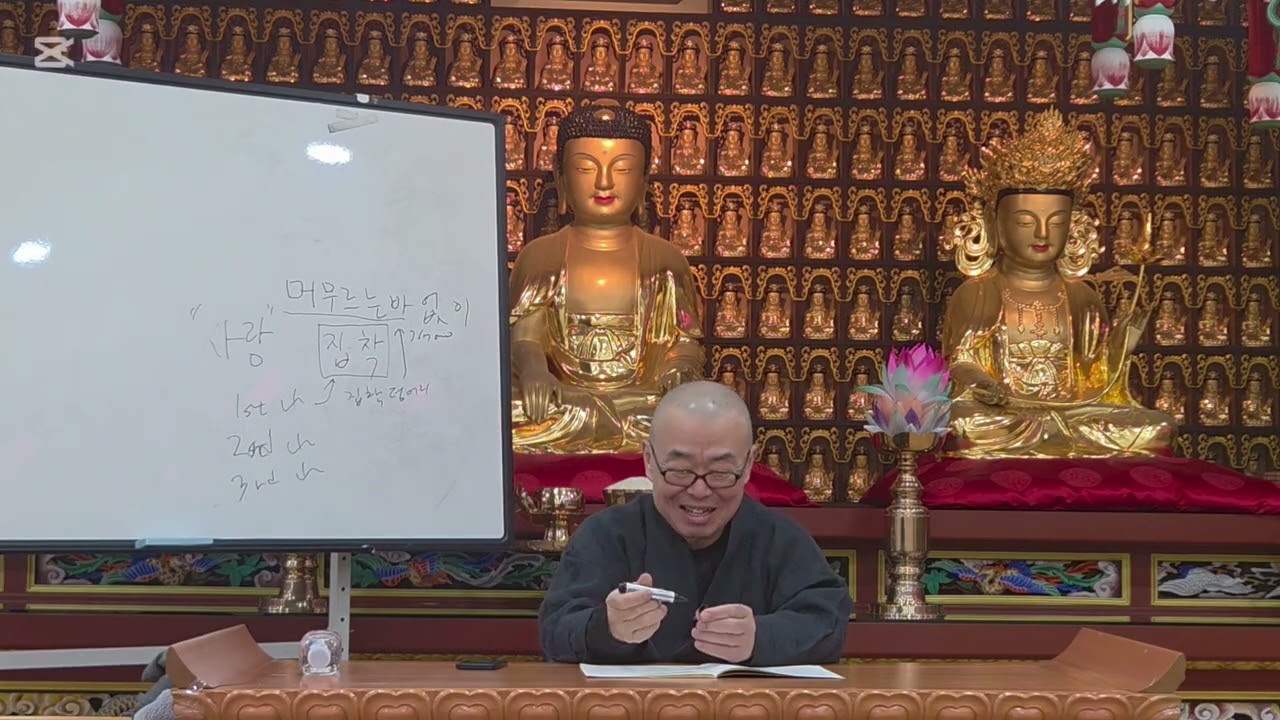 머무르는바 없이
"사랑" 집착
1st 나 집착 덩어리
2nd 나
3rd 나